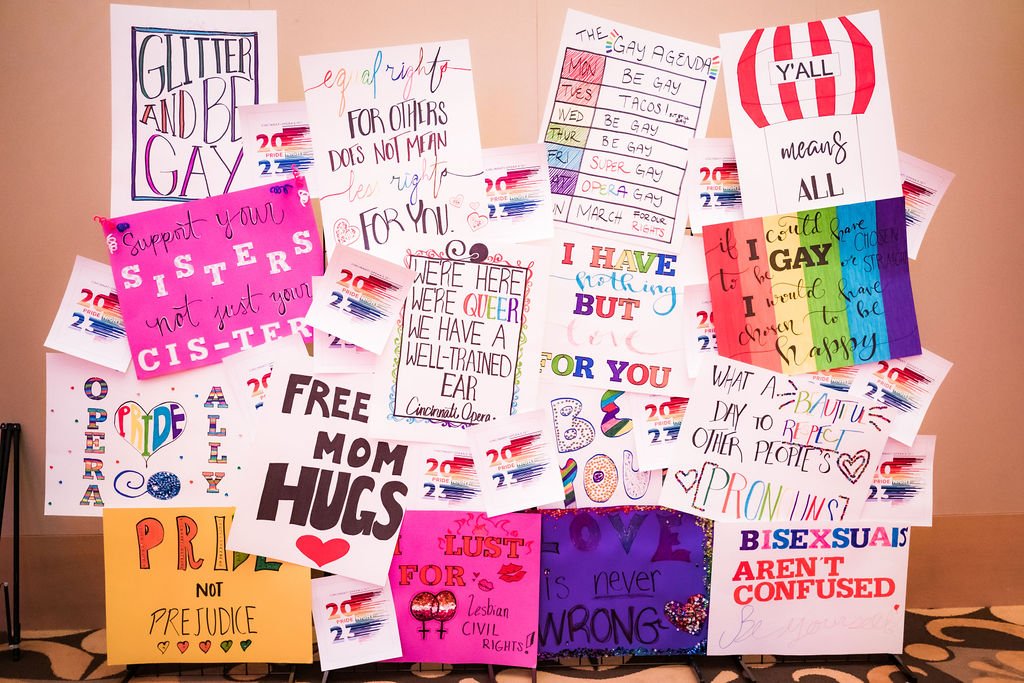 GLITTER
AND BE
GAY
equal rights
FOR OTHERS
DOES NOT MEAN
less rights
FOR YOU.
THE GAY AGENDA
MON BE GAY
TUES TACOS!
WED BE GAY
THUR BE GAY
FRI SUPER GAY
OPERA GAY
MARCH FOR OUR RIGHTS
Y'ALL
means
ALL
2023
PRIDE
2023
PRIDE
2023
PRIDE
Support your
SISTERS
not just your
CIS-TERS
WE'RE HERE
WE'RE QUEER
WE HAVE A
WELL-TRAINED
EAR
Cincinnati Opera
I HAVE
nothing
BUT
love
FOR YOU
if I could have CHOSEN
to be GAY or STRAIGHT
I would have
chosen to be
happy
2023
PRIDE
2023
PRIDE
OPERA
PRIDE
ALLY
FREE
MOM
HUGS
2023
PRIDE
2023
PRIDE
BE
YOU
2023
WHAT A...
BEAUTIFUL
DAY TO RESPECT
OTHER PEOPLE'S
PRONOUNS!
2023
PRIDE
2023
PRIDE
PRIDE
NOT
PREJUDICE
2023
PRIDE
I LUST
FOR
lesbian
CIVIL
RIGHTS!
LOVE
is never
WRONG
BISEXUALS
AREN'T
CONFUSED
Be yourself